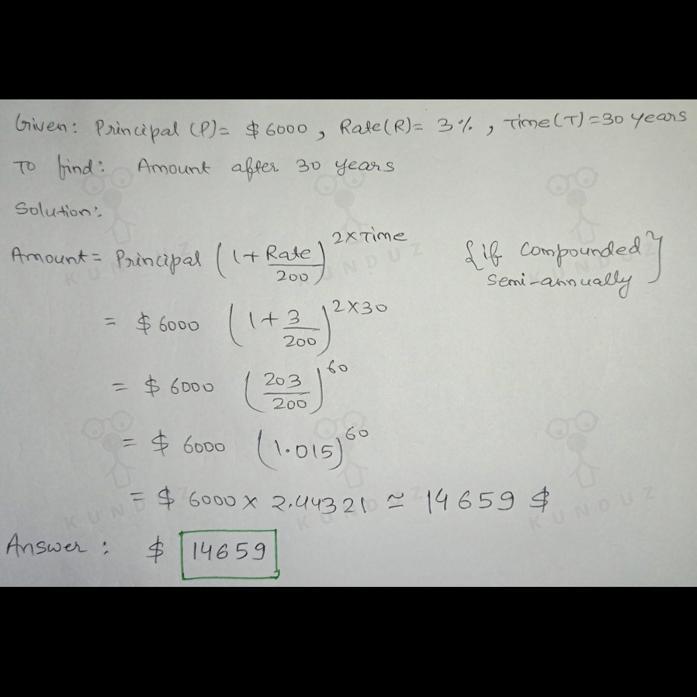 Given: Principal (P)= $6000, Rate(R)= 3%, Time(T)=30 years
To find: Amount after 30 years
Solution:
Amount = Principal (1+Rate/200)^2×Time {if compounded semi-annually}
= $6000 (1+3/200)^2×30
= $6000 (203/200)^60
= $6000 (1.015)^60
= $6000 × 2.44321 ≃ 14659 $
Answer: $ 14659
KUNDUZ
KUNDUZ
KUNDUZ
KUNDUZ